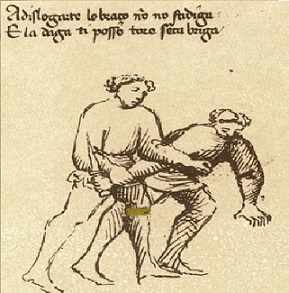 A dislogarte lo braço non o fadiga
E la daga ti posso tore sença briga